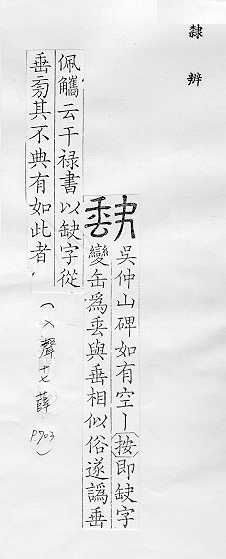 隸辨
吳仲山碑如有空丨按即缺字
變缶為垂與垂相似俗遂譌垂
佩觿云干祿書以缺字從
垂芻其不典有如此者
(入聲十七薛 P703)